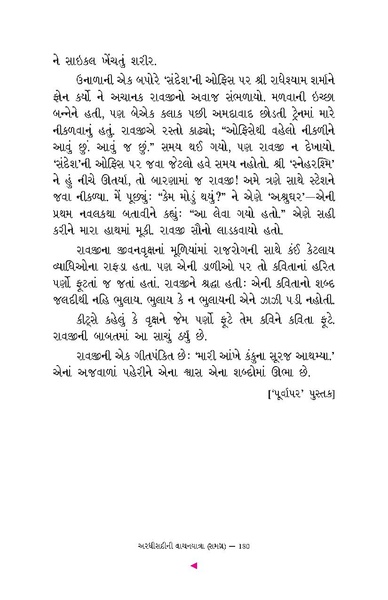 ને સાઇકલ ખેંચતું શરીર.
ઉનાળાની એક બપોરે ‘સંદેશ’ની ઓફિસ પર શ્રી રાધેશ્યામ શર્માને
ફોન કર્યો ને અચાનક રાવજીનો અવાજ સંભળાયો. મળવાની ઇચ્છા
બન્નેને હતી, પણ બેએક કલાક પછી અમદાવાદ છોડતી ટ્રેનમાં મારે
નીકળવાનું હતું. રાવજીએ રસ્તો કાઢ્યો; “ઓફિસેથી વહેલો નીકળીને
આવું છું. આવું જ છું.” સમય થઈ ગયો, પણ રાવજી ન દેખાયો.
‘સંદેશ’ની ઓફિસ પર જવા જેટલો હવે સમય નહોતો. શ્રી ‘સ્નેહરશ્મિ’
ને હું નીચે ઊતર્યા, તો બારણામાં જ રાવજી! અમે ત્રણે સાથે સ્ટેશને
જવા નીકળ્યા. મેં પૂછ્યું: “કેમ મોડું થયું?” ને એણે ‘અશ્રુઘર’—એની
પ્રથમ નવલકથા બતાવીને કહ્યું: “આ લેવા ગયો હતો.” એણે સહી
કરીને મારા હાથમાં મૂકી. રાવજી સૌનો લાડકવાયો હતો.
રાવજીના જીવનવૃક્ષનાં મૂળિયાંમાં રાજરોગની સાથે કંઈ કેટલાય
વ્યાધિઓના રાફડા હતા. પણ એની ડાળીઓ પર તો કવિતાનાં હરિત
પર્ણો ફૂટતાં જ જતાં હતાં. રાવજીને શ્રદ્ધા હતી: એની કવિતાનો શબ્દ
જલદીથી નહિ ભુલાય. ભુલાય કે ન ભુલાયની એને ઝાઝી પડી નહોતી.
કીટ્સે કહેલું કે વૃક્ષને જેમ પર્ણો ફૂટે તેમ કવિને કવિતા ફૂટે.
રાવજીની બાબતમાં આ સાચું ઠર્યું છે.
રાવજીની એક ગીતપંક્તિ છે: ‘મારી આંખે કંકુના સૂરજ આથમ્યા.’
એનાં અજવાળાં પહેરીને એના શ્વાસ એના શબ્દોમાં ઊભા છે.
[‘પૂર્વાપર’ પુસ્તક]
અરધીસદીની વાચનયાત્રા (સમગ્ર) — 180